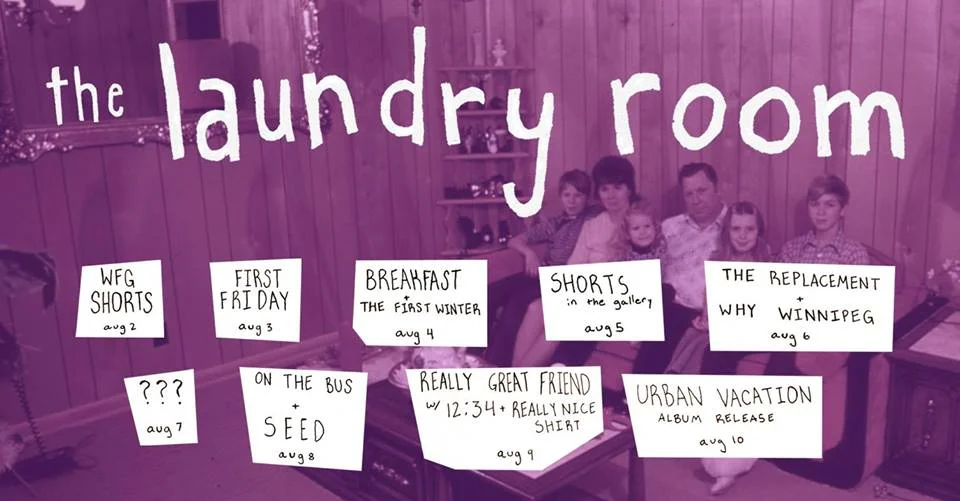 the laundry room
WFG
SHORTS
aug 2
FIRST
FRIDAY
aug 3
BREAKFAST
+
THE FIRST WINTER
aug 4
SHORTS
in the gallery
aug 5
THE REPLACEMENT
+
WHY WINNIPEG
aug 6
???
aug 7
ON THE BUS
+
SEED
aug 8
REALLY GREAT FRIEND
w/ 12:34 + REALLY NICE
SHIRT
aug 9
URBAN VACATION
ALBUM RELEASE
aug 10